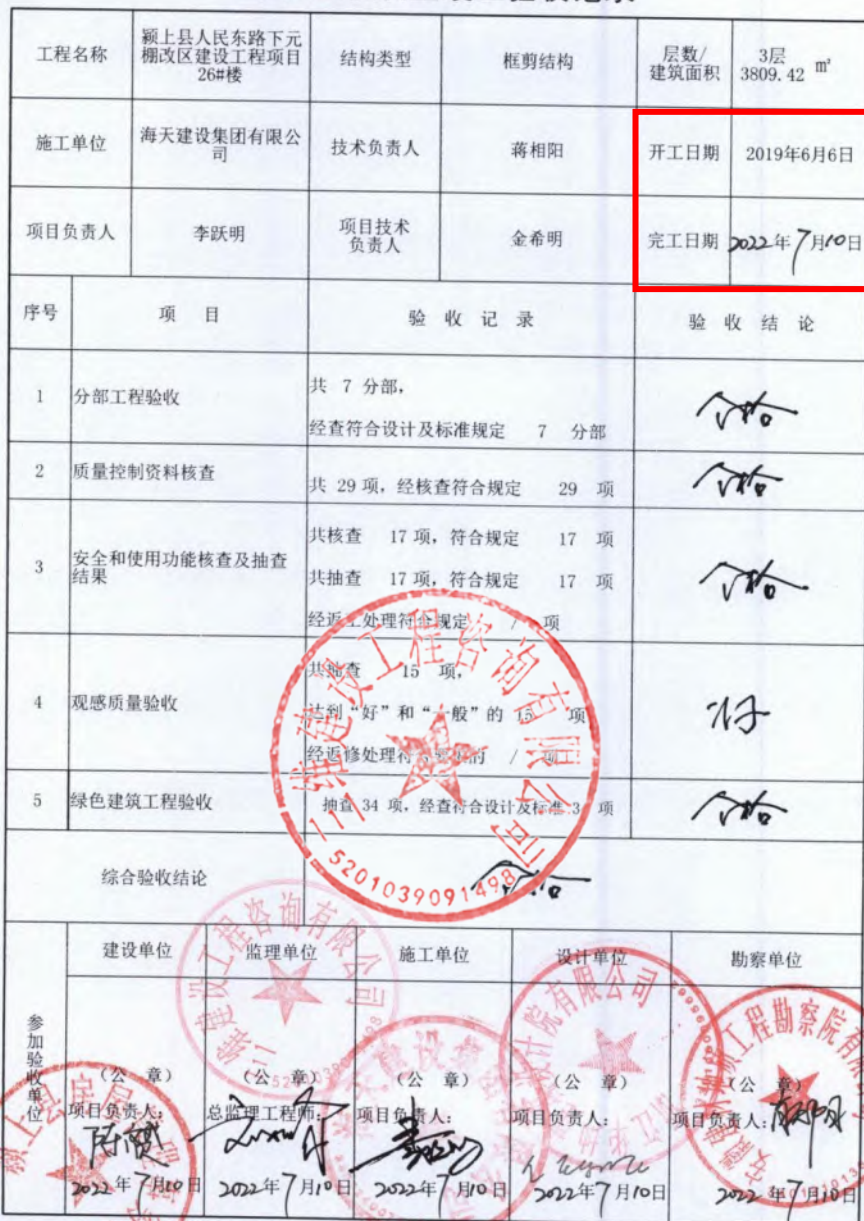 工程名称
颍上县人民东路下元
棚改区建设工程项目
26#楼
结构类型
框剪结构
层数/
建筑面积
3层
3809.42 m²
施工单位
海天建设集团有限公
司
技术负责人
蒋相阳
开工日期
2019年6月6日
项目负责人
李跃明
项目技术
负责人
金希明
完工日期
2022年7月10日
序号
项 目
验 收 记 录
验 收 结 论
1
分部工程验收
共 7 分部,
经查符合设计及标准规定 7 分部
合格
2
质量控制资料核查
共 29 项, 经核查符合规定 29 项
合格
3
安全和使用功能核查及抽查
结果
共核查 17 项, 符合规定 17 项
共抽查 17 项, 符合规定 17 项
经返工处理符合规定 / 项
合格
4
观感质量验收
共抽查 15 项,
达到“好”和“一般”的 15 项
经返修处理符合要求的 / 项
好
5
绿色建筑工程验收
抽查 34 项, 经查符合设计及标准 3 项
合格
综合验收结论
合格
三维建设工程咨询有限公司
5201039091498
参加验收单位
建设单位
监理单位
施工单位
设计单位
勘察单位
(公 章)
(公 章)
(公 章)
(公 章)
(公 章)
项目负责人:
总监理工程师:
项目负责人:
项目负责人:
项目负责人:
2022年7月10日
2022年7月10日
2022年7月10日
2022年7月10日
2022年7月10日